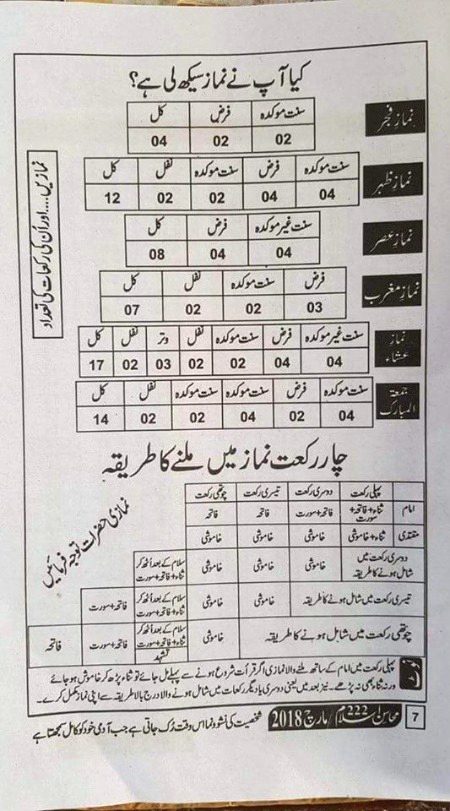 کیا آپ نے نماز سیکھ لی ہے؟
نمازیں....اور اُن کی رکعات کی تعداد
نماز فجر
سنت موکدہ فرض کل
02 02 04
نماز ظہر
سنت موکدہ فرض سنت موکدہ نفل کل
04 04 02 02 12
نماز عصر
سنت غیر موکدہ فرض کل
04 04 08
نماز مغرب
فرض سنت موکدہ نفل کل
03 02 02 07
نماز عشاء
سنت غیر موکدہ فرض سنت موکدہ نفل وتر نفل کل
04 04 02 02 03 02 17
جمعۃ المبارک
سنت موکدہ فرض سنت موکدہ سنت موکدہ نفل کل
04 02 04 02 02 14
چار رکعت نماز میں ملنے کا طریقہ
نمازی حضرات توجہ فرمائیں
پہلی رکعت دوسری رکعت تیسری رکعت چوتھی رکعت
امام ثناء+فاتحہ+سورت فاتحہ+سورت فاتحہ فاتحہ
مقتدی ثناء+خاموشی خاموشی خاموشی خاموشی
دوسری رکعت میں شامل ہونے کا طریقہ خاموشی خاموشی خاموشی سلام کے بعد اُٹھ کر ثناء+فاتحہ+سورت
تیسری رکعت میں شامل ہونے کا طریقہ خاموشی خاموشی سلام کے بعد اُٹھ کر ثناء+فاتحہ+سورت فاتحہ+سورت
چوتھی رکعت میں شامل ہونے کا طریقہ خاموشی سلام کے بعد اُٹھ کر ثناء+فاتحہ+سورت تشہد فاتحہ+سورت فاتحہ
پہلی رکعت میں امام کے ساتھ ملنے والا نمازی اگر قرأت شروع ہونے سے پہلے مل جائے تو ثناء پڑھ کر خاموش ہو جائے
ورنہ ثناء بھی نہ پڑھے۔ نیز بعد میں یعنی دوسری یا دیگر رکعات میں ملنے والا درج بالا طریقہ سے اپنی نماز مکمل کرے۔
7 محاسن اسلام 222 / مارچ 2018 شخصیت کی نشوونما اس وقت رُک جاتی ہے جب آدمی خود کو کامل سمجھتا ہے